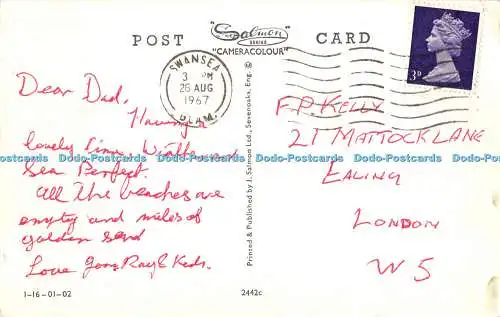 POST CARD
Salmon
SERIES
"CAMERACOLOUR"
SWANSEA
3 PM
26 AUG
1967
GLAM.
3D
Dear Dad,
Having a
lovely time. Weather and
Sea Perfect.
All the beaches are
empty and miles of
golden sand
Love Ray & Kids.
1-16-01-02
Printed & Published by J. Salmon Ltd., Sevenoaks, Eng. ©
2442c
F.P. KELLY
21 MATTOCK LANE
EALING
LONDON
W5
Dodo-Postcards Dodo-Postcards Dodo-Postcards Dodo-Postcards Dodo-Postcards Dodo-Postcards